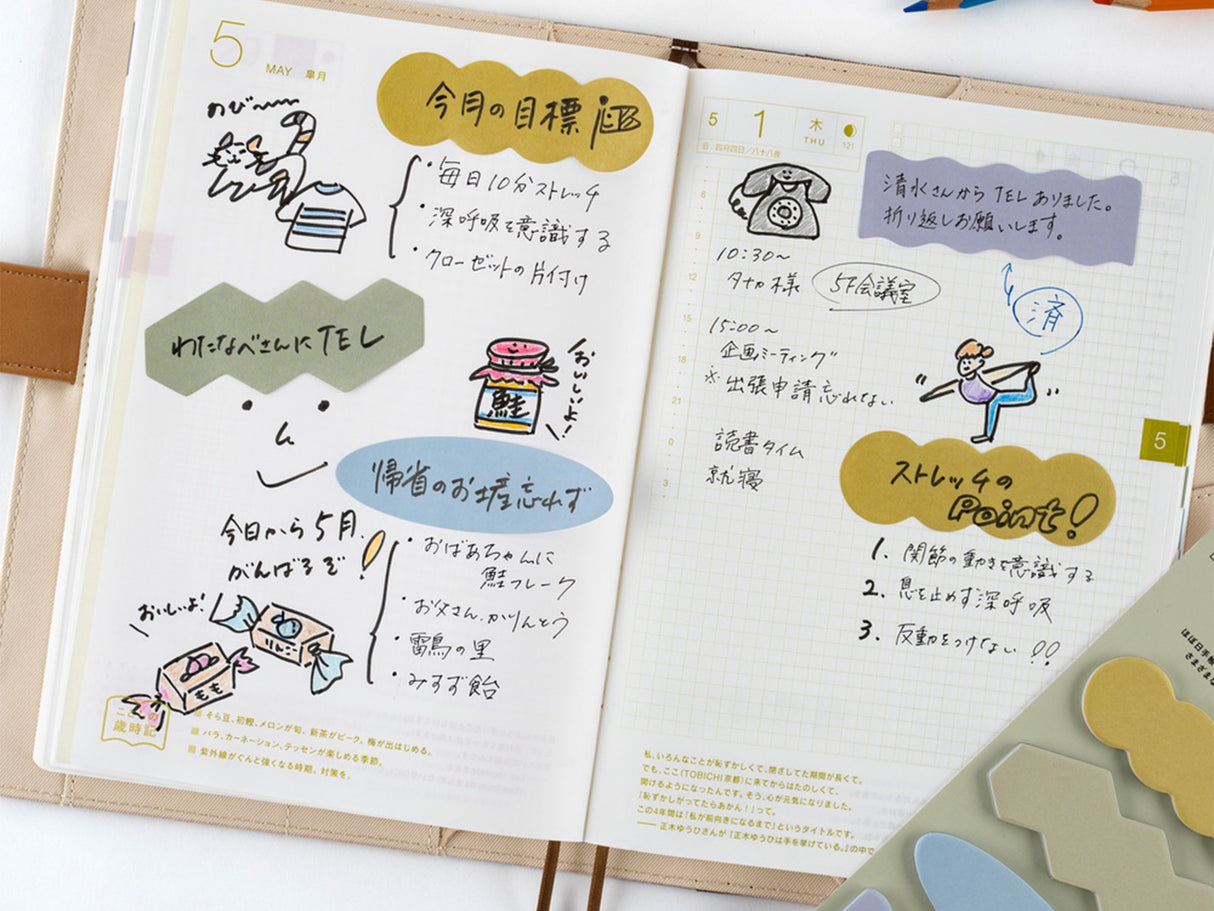 5
MAY 皐月
のび〜〜
今月の目標
・毎日10分ストレッチ
・深呼吸を意識する
・クローゼットの片付け
わたなべさんにTEL
おいしいよ!
鮭
帰省のお土産忘れず
今日から5月、
がんばるぞ!
・おばあちゃんに
鮭フレーク
・お父さん、かりんとう
・雷鳥の里
・みすず飴
おいしいよ!
りんご
もも
こよみの
歳時記
そら豆、初鰹、メロンが旬。新茶がピーク。梅が出はじめる。
バラ、カーネーション、テッセンが楽しめる季節。
紫外線がぐんと強くなる時期。対策を。
5 1 木
THU
121
旧:四月四日/八十八夜
清水さんからTELありました。
折り返しお願いします。
済
6
9
12
15
18
21
0
3
10:30〜
タナカ様 5F会議室
15:00〜
企画ミーティング
※出張申請忘れない
読書タイム
就寝
5
ストレッチの
Point!
1. 関節の動きを意識する
2. 息を止めず深呼吸
3. 反動をつけない!!
私、いろんなことが恥ずかしくて、閉ざしてた期間が長くて。
でも、ここ(TOBICHI京都)に来てからはたのしくて、
開けるようになったんです。そう、心が元気になりました。
「恥ずかしがってたらあかん!」って。
この4年間は「私が前向きになるまで」というタイトルです。
── 正木ゆうひさんが『正木ゆうひは手を挙げている。』の中で
ほぼ日手帳
さまざまな